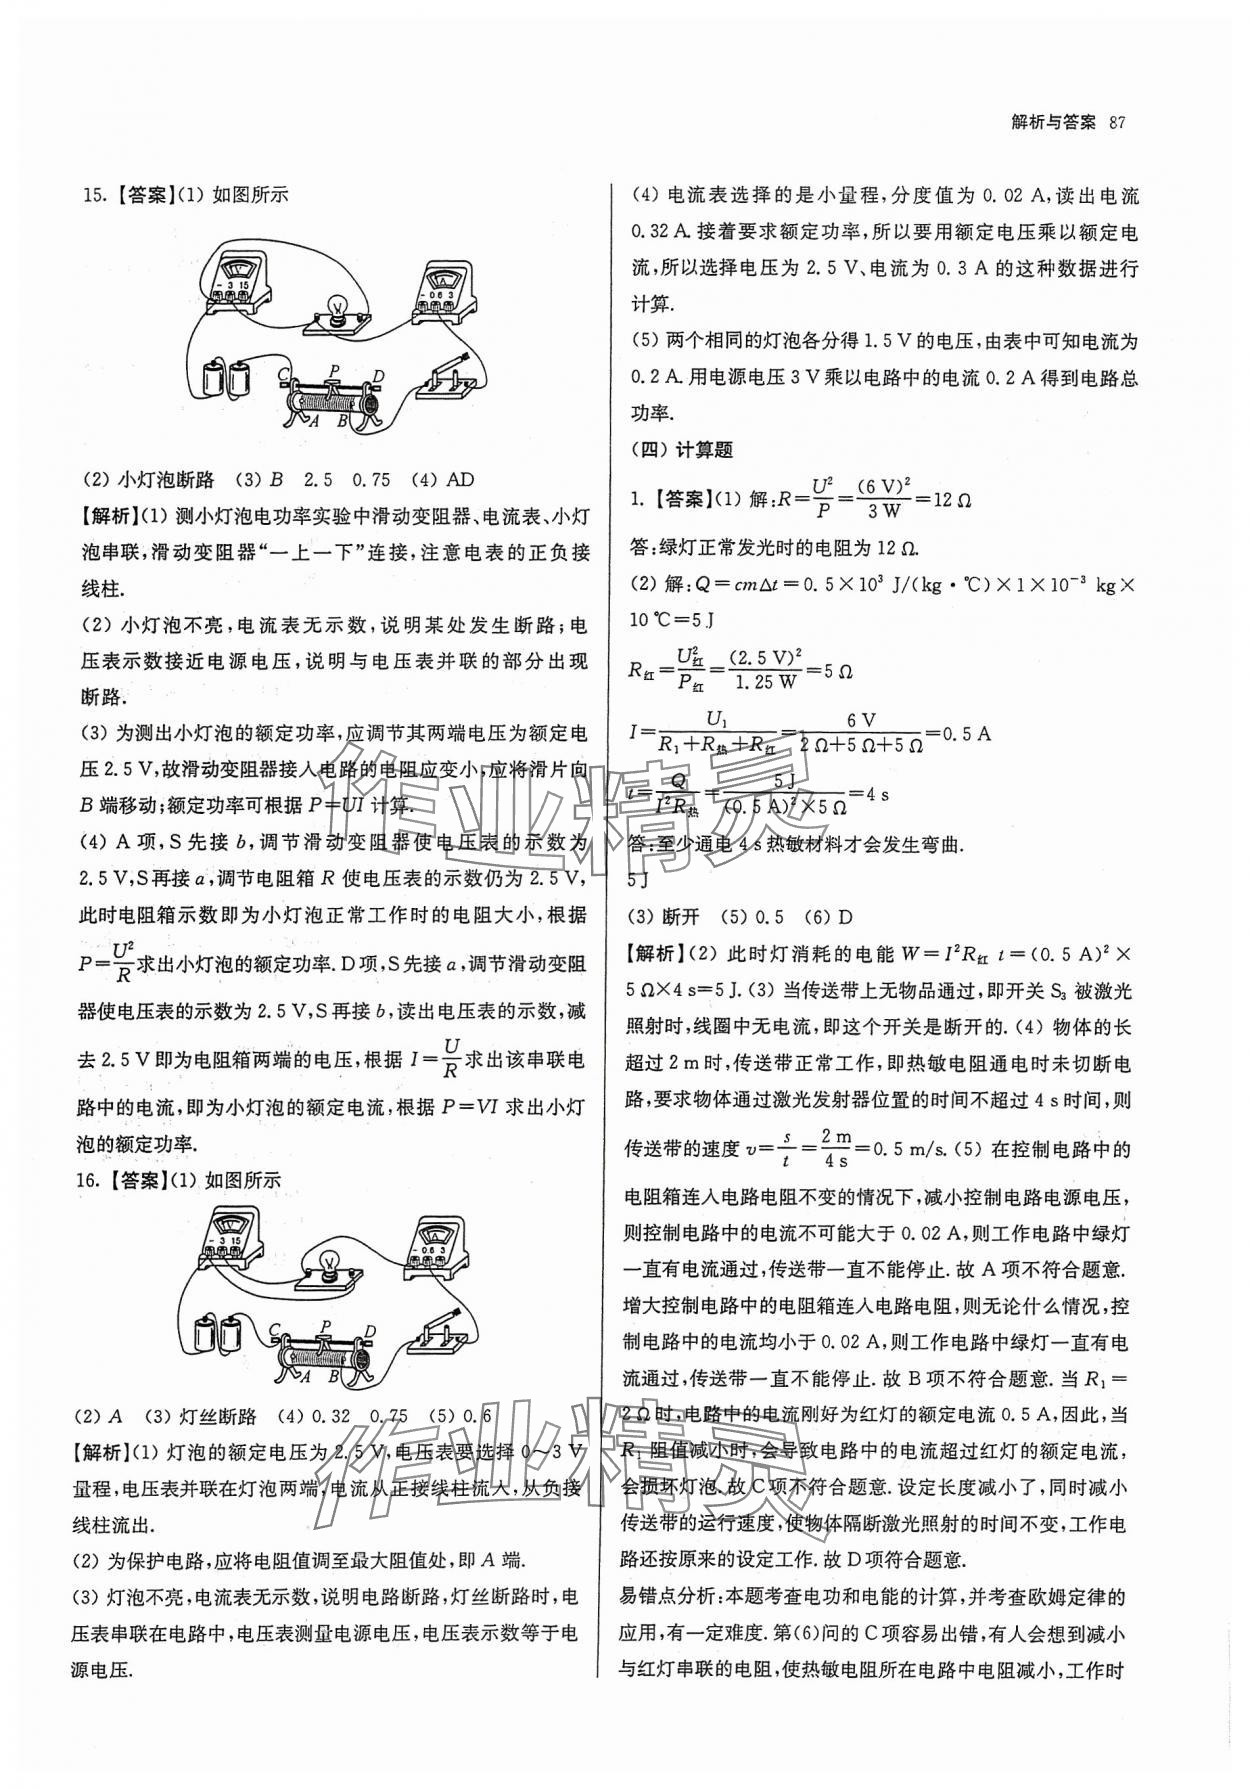 解析与答案 87
15.【答案】(1) 如图所示
V
- 3 15
A
- 0.6 3
C P D
A B
(2) 小灯泡断路 (3) B 2.5 0.75 (4) AD
【解析】(1) 测小灯泡电功率实验中滑动变阻器、电流表、小灯
泡串联,滑动变阻器“一上一下”连接,注意电表的正负接
线柱.
(2) 小灯泡不亮,电流表无示数,说明某处发生断路;电
压表示数接近电源电压,说明与电压表并联的部分出现
断路.
(3) 为测出小灯泡的额定功率,应调节其两端电压为额定电
压2.5 V,故滑动变阻器接入电路的电阻应变小,应将滑片向
B 端移动;额定功率可根据 P=UI 计算.
(4) A 项,S 先接 b,调节滑动变阻器使电压表的示数为
2.5 V,S再接 a,调节电阻箱 R 使电压表的示数仍为 2.5 V,
此时电阻箱示数即为小灯泡正常工作时的电阻大小,根据
P=U²/R求出小灯泡的额定功率.D项,S先接 a,调节滑动变阻
器使电压表的示数为2.5 V,S再接 b,读出电压表的示数,减
去 2.5 V 即为电阻箱两端的电压,根据 I=U/R求出该串联电
路中的电流,即为小灯泡的额定电流,根据 P=VI 求出小灯
泡的额定功率.
16.【答案】(1) 如图所示
- 3 15
A
- 0.6 3
C P D
A B
(2) A (3) 灯丝断路 (4) 0.32 0.75 (5) 0.6
【解析】(1) 灯泡的额定电压为2.5 V,电压表要选择0～3 V
量程,电压表并联在灯泡两端,电流从正接线柱流入,从负接
线柱流出.
(2) 为保护电路,应将电阻值调至最大阻值处,即 A 端.
(3) 灯泡不亮,电流表无示数,说明电路断路,灯丝断路时,电
压表串联在电路中,电压表测量电源电压,电压表示数等于电
源电压.
(4) 电流表选择的是小量程,分度值为 0.02 A,读出电流
0.32 A.接着要求额定功率,所以要用额定电压乘以额定电
流,所以选择电压为 2.5 V、电流为 0.3 A 的这种数据进行
计算.
(5) 两个相同的灯泡各分得1.5 V的电压,由表中可知电流为
0.2 A.用电源电压3 V乘以电路中的电流0.2 A得到电路总
功率.
(四) 计算题
1.【答案】(1) 解:R=U²/P=(6 V)²/3 W=12 Ω
答:绿灯正常发光时的电阻为 12 Ω.
(2) 解:Q=cmΔt=0.5×10³ J/(kg·℃)×1×10⁻³ kg×
10 ℃=5 J
R红=U²红/P红=(2.5 V)²/1.25 W=5 Ω
I=U₁/(R₁+R热+R红)=6 V/(2 Ω+5 Ω+5 Ω)=0.5 A
t=Q/I²R热=5 J/((0.5 A)²×5 Ω)=4 s
答:至少通电4 s热敏材料才会发生弯曲.
5 J
(3) 断开 (5) 0.5 (6) D
【解析】(2) 此时灯消耗的电能 W=I²R红 t=(0.5 A)²×
5 Ω×4 s=5 J.(3) 当传送带上无物品通过,即开关 S₃ 被激光
照射时,线圈中无电流,即这个开关是断开的.(4) 物体的长
超过 2 m时,传送带正常工作,即热敏电阻通电时未切断电
路,要求物体通过激光发射器位置的时间不超过 4 s时间,则
传送带的速度 v=s/t=2 m/4 s=0.5 m/s.(5) 在控制电路中的
电阻箱连入电路电阻不变的情况下,减小控制电路电源电压,
则控制电路中的电流不可能大于 0.02 A,则工作电路中绿灯
一直有电流通过,传送带一直不能停止.故 A 项不符合题意.
增大控制电路中的电阻箱连入电路电阻,则无论什么情况,控
制电路中的电流均小于 0.02 A,则工作电路中绿灯一直有电
流通过,传送带一直不能停止.故 B 项不符合题意.当 R₁=
2 Ω时,电路中的电流刚好为红灯的额定电流0.5 A,因此,当
R₁ 阻值减小时,会导致电路中的电流超过红灯的额定电流,
会损坏灯泡.故C项不符合题意.设定长度减小了,同时减小
传送带的运行速度,使物体隔断激光照射的时间不变,工作电
路还按原来的设定工作.故D项符合题意.
易错点分析:本题考查电功和电能的计算,并考查欧姆定律的
应用,有一定难度.第(6)问的C项容易出错,有人会想到减小
与红灯串联的电阻,使热敏电阻所在电路中电阻减小,工作时
作业精灵
作业精灵